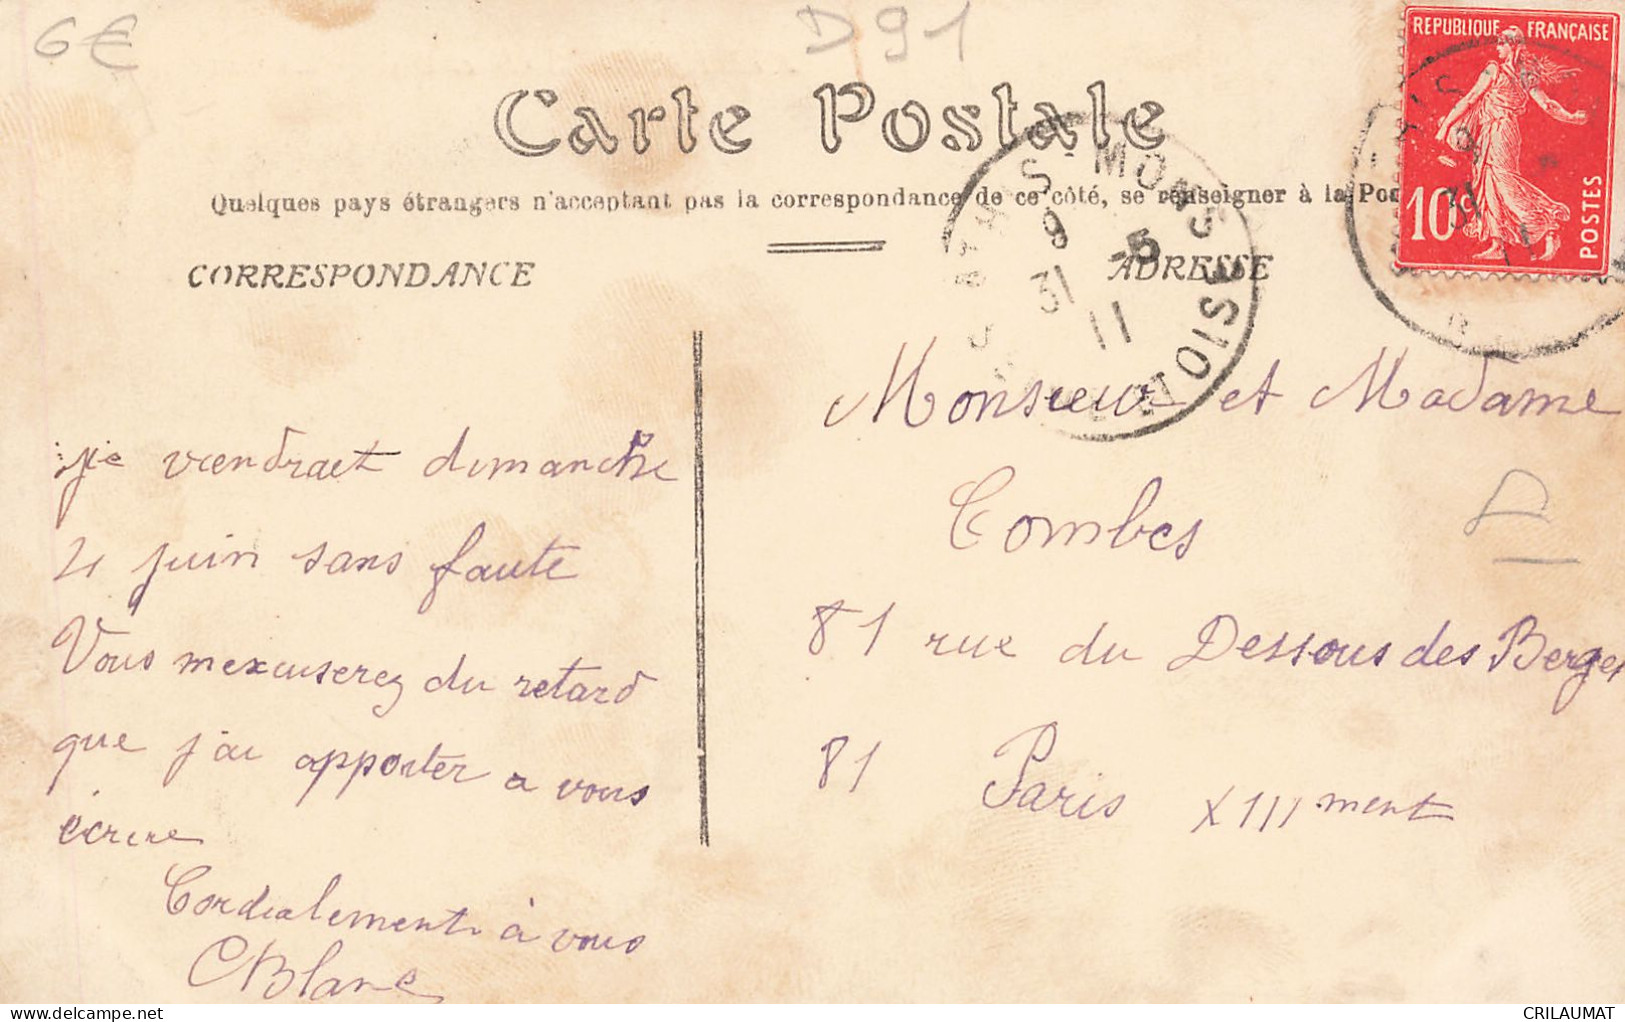 6€
D91
Carte Postale
REPUBLIQUE FRANÇAISE
10c
POSTES
Quelques pays étrangers n'acceptant pas la correspondance de ce côté, se renseigner à la Pos
ATHIS-MONS
SEINE ET OISE
9 31 -5 11
CORRESPONDANCE
ADRESSE
je viendrait dimanche
4 juin sans faute
Vous mexcuserez du retard
que j'ai apporter a vous
écrire
Cordialement à vous
CBlanc
Monsieur et Madame
Combes
81 rue du Dessous des Berger
81 Paris XIIIment
delcampe.net
CRILAUMAT